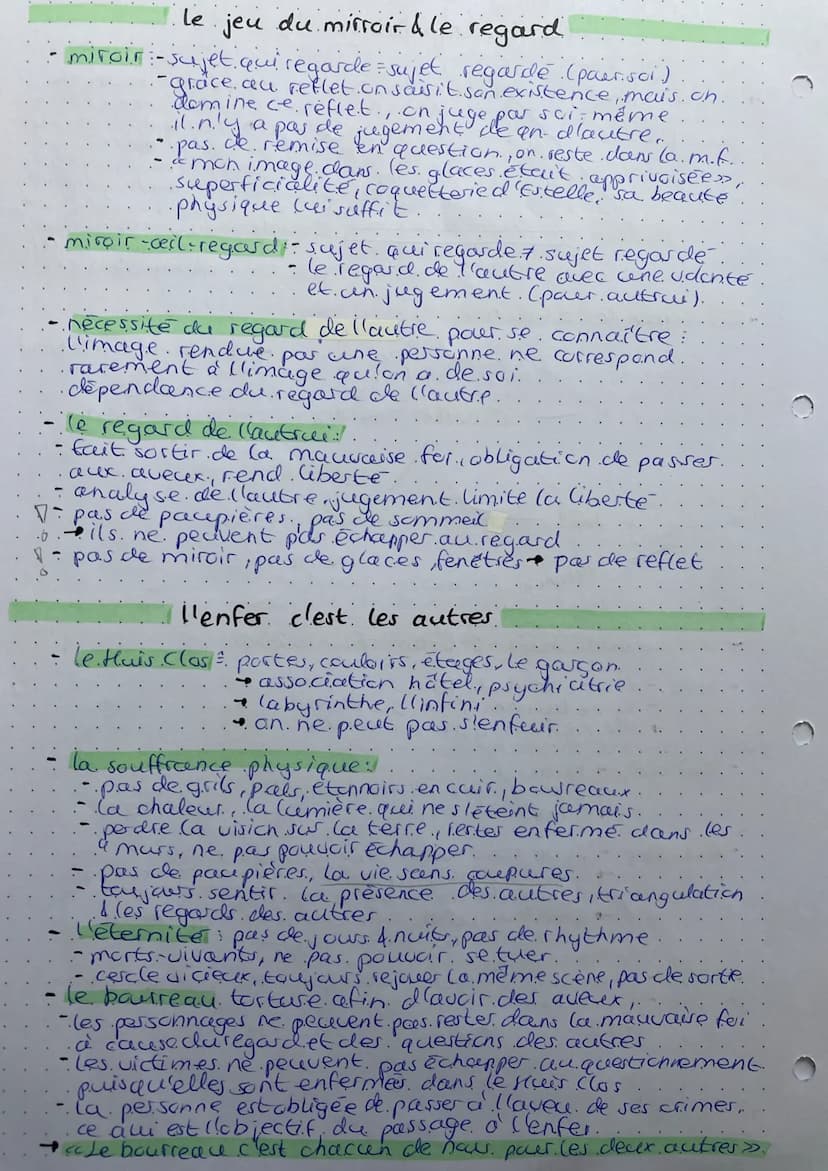 le jeu du mirroir & le regard
- miroir :- sujet qui regarde = sujet regardé (pour soi)
- grâce au reflet on saisit son existence, mais on
domine ce reflet, on juge par soi-même
il n'y a pas de jugement de qn d'autre,
- pas de remise en question, on reste dans la m.f.
- «mon image dans les glaces était apprivoisée»,
superficialité, coquetterie d'Estelle, sa beauté
physique lui suffit
- miroir-œil-regard :- sujet qui regarde ≠ sujet regardé
- le regard de l'autre avec une volonté
et un jugement (pour autrui)
- nécessité du regard de l'autre pour se connaître :
l'image rendue par une personne ne correspond
rarement à l'image qu'on a de soi
dépendance du regard de l'autre
- le regard de l'autrui:
- fait sortir de la mauvaise foi, obligation de passer
aux aveux, rend liberté
- analyse de l'autre, jugement limite la liberté
! - pas de paupières, pas de sommeil
→ ils ne peuvent pas échapper au regard
! - pas de miroir, pas de glaces, fenêtres → pas de reflet
l'enfer c'est les autres
- le Huis Clos : portes, couloirs, étages, le garçon
→ association hôtel, psychiatrie
→ labyrinthe, l'infini
→ on ne peut pas s'enfuir
- la souffrance physique:
- pas de grils, pals, etonnoirs en cuir, bourreaux
- la chaleur, la lumière qui ne s'éteint jamais
- perdre la vision sur la terre, restes enfermé dans les
4 murs, ne pas pouvoir échapper
- pas de paupières, la vie sans coupures
- toujours sentir la présence des autres, triangulation
& les regards des autres
- l'éternité : pas de jours & nuits, pas de rhythme
- morts-vivants, ne pas pouvoir se tuer
- cercle vicieux, toujours rejouer la même scène, pas de sortie
- le bourreau torture afin d'avoir des aveux,
- les personnages ne peuvent pas rester dans la mauvaise foi
à cause du regard et des questions des autres
- les victimes ne peuvent pas échapper au questionnement
puisqu'elles sont enfermées dans le Huis Clos
- la personne est obligée de passer à l'aveu de ses crimes,
ce qui est l'objectif du passage à l'enfer
→ «Le bourreau c'est chacun de nous pour les deux autres».